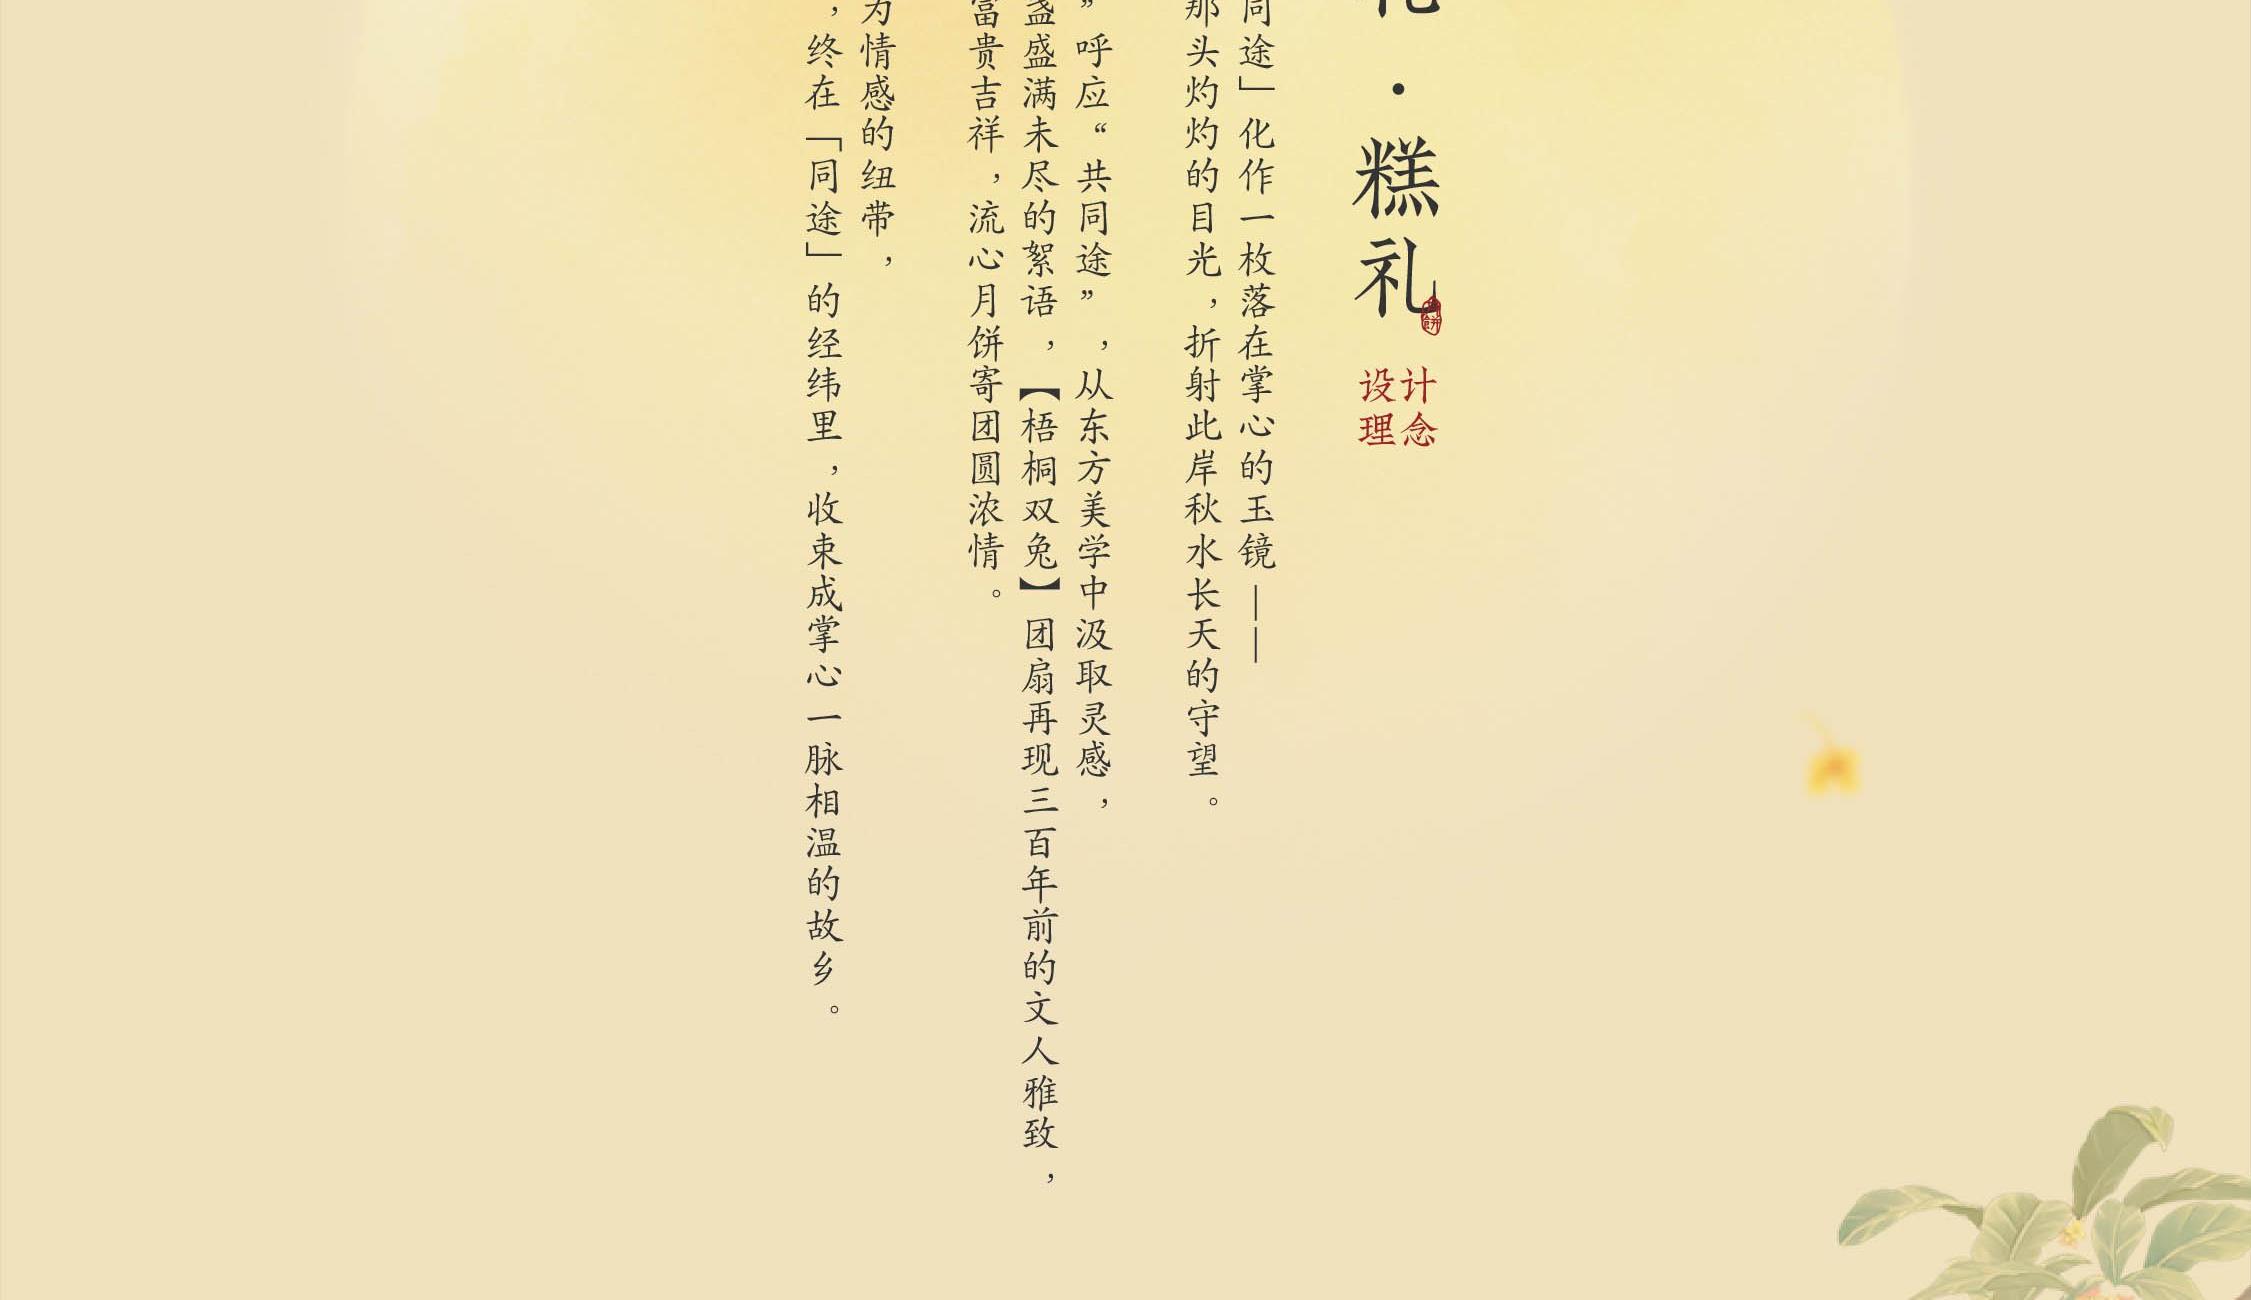 ·糕礼
设计
理念
同途」化作一枚落在掌心的玉镜——
那头灼灼的目光，折射此岸秋水长天的守望。
”呼应“共同途”，从东方美学中汲取灵感，
盏盛满未尽的絮语，【梧桐双兔】团扇再现三百年前的文人雅致，
富贵吉祥，流心月饼寄团圆浓情。
为情感的纽带，
，终在「同途」的经纬里，收束成掌心一脉相温的故乡。